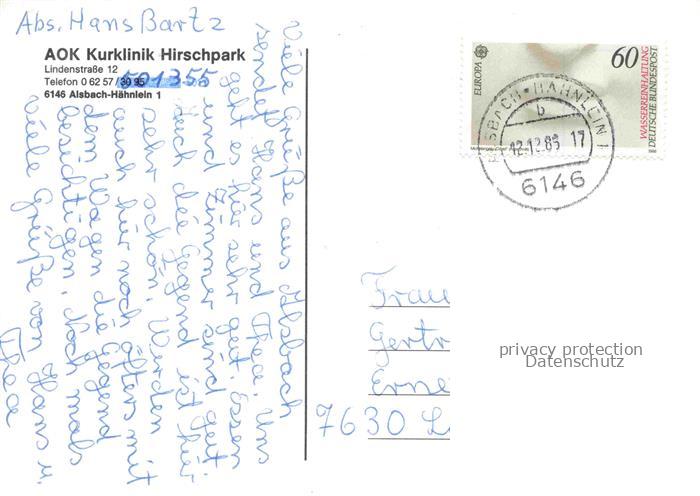 Abs. Hans Bartz
AOK Kurklinik Hirschpark
Lindenstraße 12
Telefon 0 62 57/
501355
6146 Alsbach-Hähnlein 1
Viele Grüße aus Alsbach
sendet Hans und Thea. Uns
geht es hier sehr gut. Essen
und Zimmer sind gut.
Auch die Gegend ist hier
sehr schön. Werden
auch hier noch öfters mit
dem Wagen die Gegend
besichtigen. Noch mals
viele Grüße von Hans u.
Thea
EUROPA
60
WASSERREINHALTUNG
DEUTSCHE BUNDESPOST
ALSBACH-HÄHNLEIN 1
b
17
6146
Frau
Gertr
Erne
7630 L
privacy protection
Datenschutz